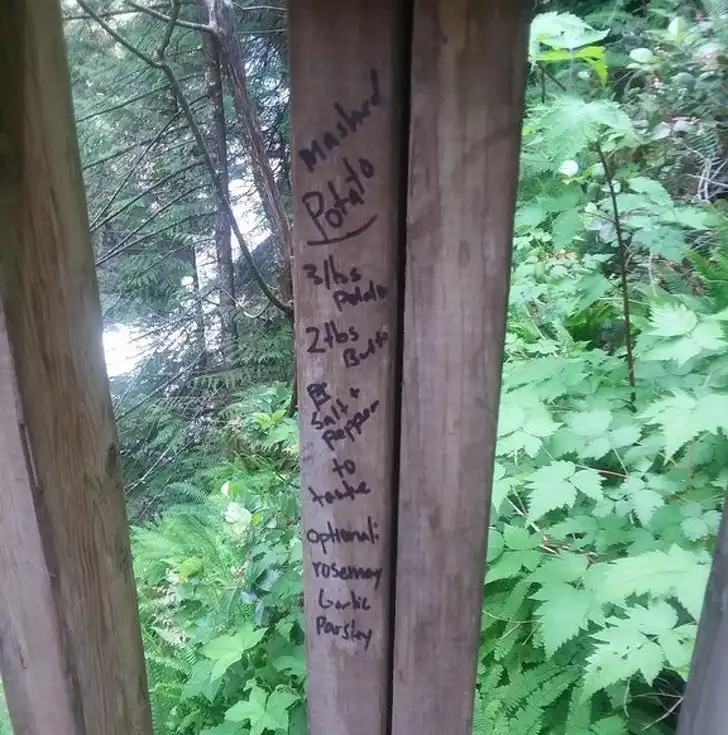 Mashed
Potato
3lbs
Potato
2lbs
Butt
Salt +
Pepper
to
taste
optional:
rosemary
Garlic
Parsley